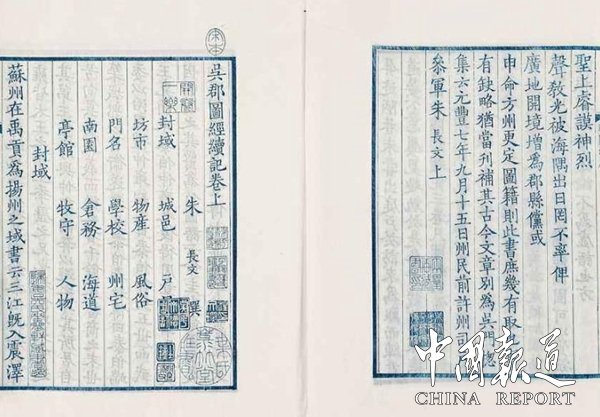 聖上睿謨神烈
聲敎光被海隅出日罔不率俾
廣地開境增爲郡縣儻或
申命方州更定圖籍則此書庶幾有取
有缺略猶當刊補其古今文章別爲吳門
集云元豐七年九月十五日州民前許州司
參軍朱 長文 上
吳郡圖經續記卷上
朱 長文 撰
封域 城邑 戶
坊市 物產 風俗
門名 學校 州宅
南園 倉務 海道
亭館 牧守 人物
封域
蘇州在禹貢爲揚州之域書云三江旣入震澤
中國報道
CHINA REPORT